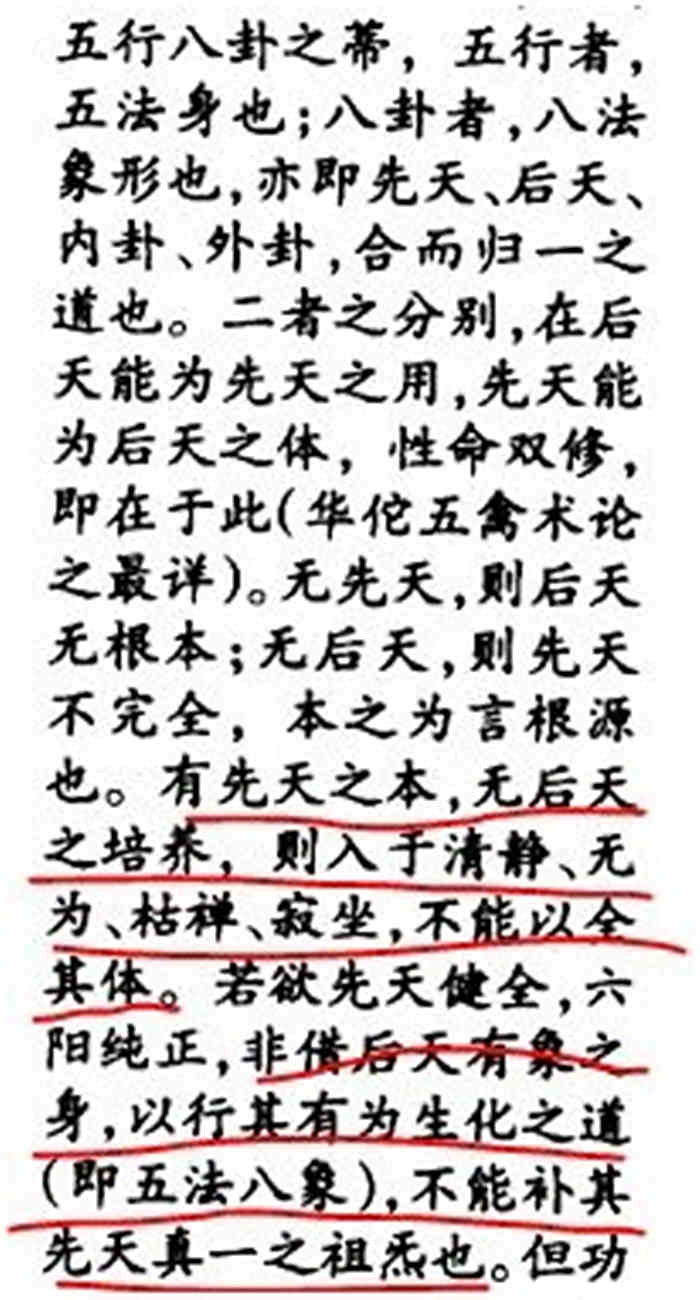 五行八卦之蒂，五行者，
五法身也；八卦者，八法
象形也，亦即先天、后天、
内卦、外卦，合而归一之
道也。二者之分别，在后
天能为先天之用，先天能
为后天之体，性命双修，
即在于此（华佗五禽术论
之最详）。无先天，则后天
无根本；无后天，则先天
不完全，本之为言根源
也。有先天之本，无后天
之培养，则入于清静、无
为、枯禅、寂坐，不能以全
其体。若欲先天健全，六
阳纯正，非借后天有象之
身，以行其有为生化之道
（即五法八象），不能补其
先天真一之祖炁也。但功